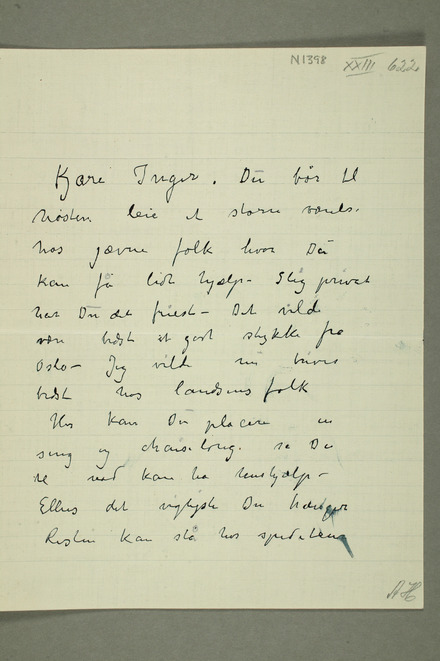 N1398 XXIII 622
Kjære Inger. Du bør til
høsten leie et større værelse
hos jævne folk hvor Du
kan få lidt hjælp – Slig privat
har Du det friest – Det vild
være bedst et godt stykke fra
Oslo – Jeg vilde nu trives
bedst hos landsens folk
Her kan Du placere en
seng og chaiselong. så Du
te nød kan ha hushjælp –
Ellers det vigtigste Du trænger
Resten kan stå hos speditøren